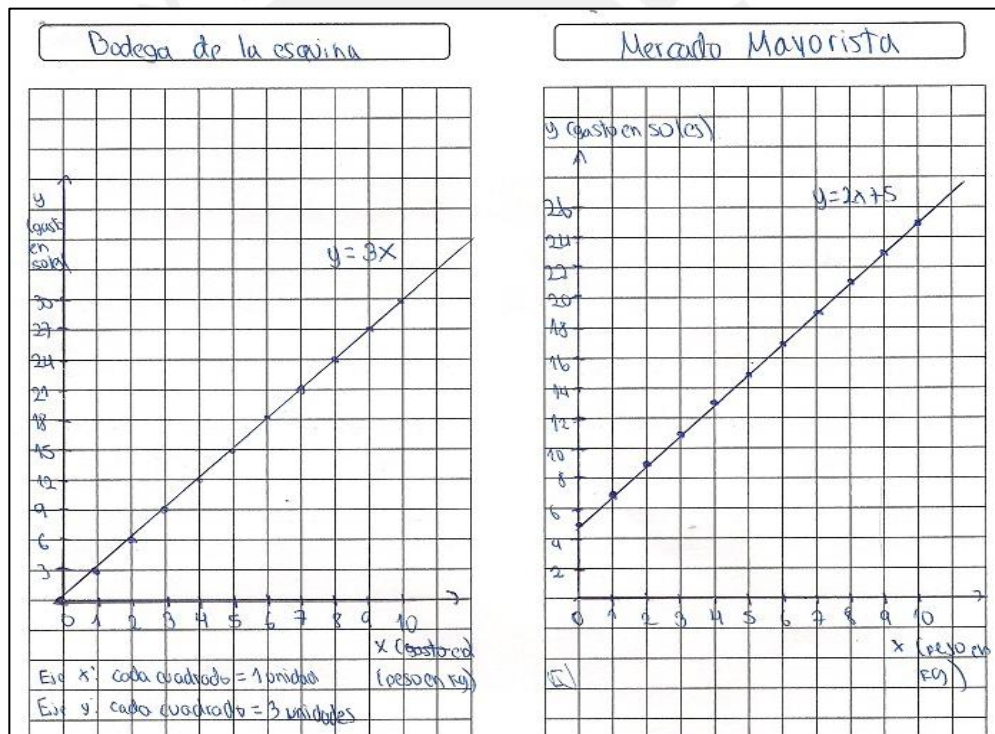 Bodega de la esquina
y
(gasto
en
soles)
y = 3x
30
27
24
21
18
15
12
9
6
3
0 1 2 3 4 5 6 7 8 9 10
x
(peso en kg)
Eje x: cada cuadrado = 1 unidad
Eje y: cada cuadrado = 3 unidades
Mercado Mayorista
y (gasto en soles)
y=2x+5
26
24
22
20
18
16
14
12
10
8
6
4
2
0 1 2 3 4 5 6 7 8 9 10
x (peso en
kg)